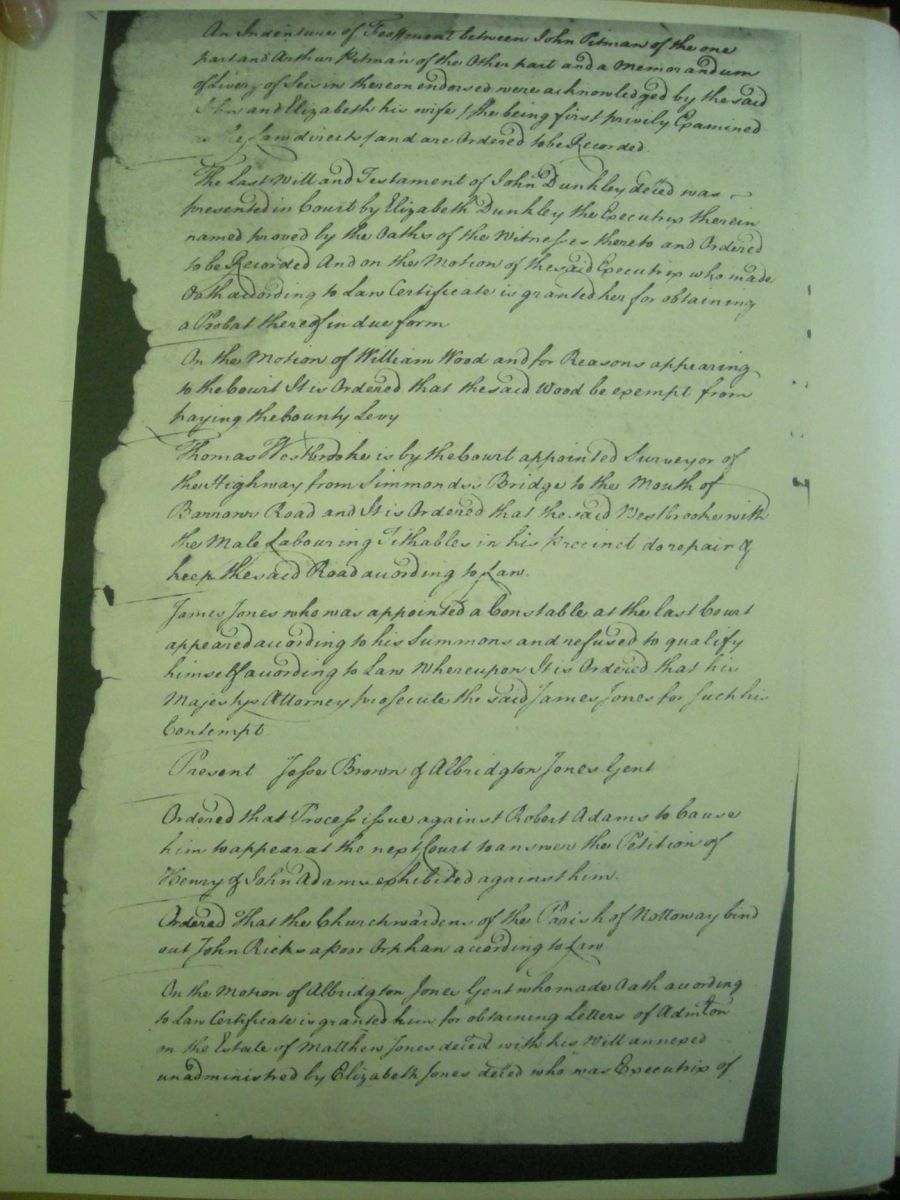 An Indenture of Feoffment between John Pitman of the one
part and Arthur Pitman of the Other part and a Memorandum
of Livery of Seisin thereon endorsed were acknowledged by the said
John and Elizabeth his wife /she being first privily Examined
as the Law directs/ and are Ordered to be Recorded.
The Last Will and Testament of John Dunkley deced was
presented in Court by Elizabeth Dunkley the Executrix therein
named proved by the Oaths of the Witnesses thereto and Ordered
to be Recorded And on the Motion of the said Executrix who made
Oath according to Law Certificate is granted her for obtaining
a Probat thereof in due form
On the Motion of William Wood and for Reasons appearing
to the Court It is Ordered that the said Wood be exempt from
paying the County Levy
Thomas Westbrooke is by the Court appointed Surveyor of
the Highway from Simmonds's Bridge to the Mouth of
Barrows Road and It is Ordered that the said Westbrooke with
the Male Labouring Tithables in his Precinct do repair &
keep the said Road according to Law.
James Jones who was appointed a Constable at the last Court
appeared according to his Summons and refused to qualify
himself according to Law Whereupon It is Ordered that his
Majestys Attorney prosecute the said James Jones for such his
Contempt
Present Jesse Brown & Albridgton Jones Gent
Ordered that Process issue against Robert Adams to Cause
him to appear at the next Court to answer the Petition of
Henry & John Adams exhibited against him.
Ordered That the Churchwardens of the Parish of Nottoway bind
out John Ricks a poor Orphan according to Law
On the Motion of Albridgton Jones Gent who made Oath according
to Law Certificate is granted him for obtaining Letters of Admton
on the Estate of Matthew Jones deced with his Will annexed
unadministred by Elizabeth Jones deced who was Executrix of